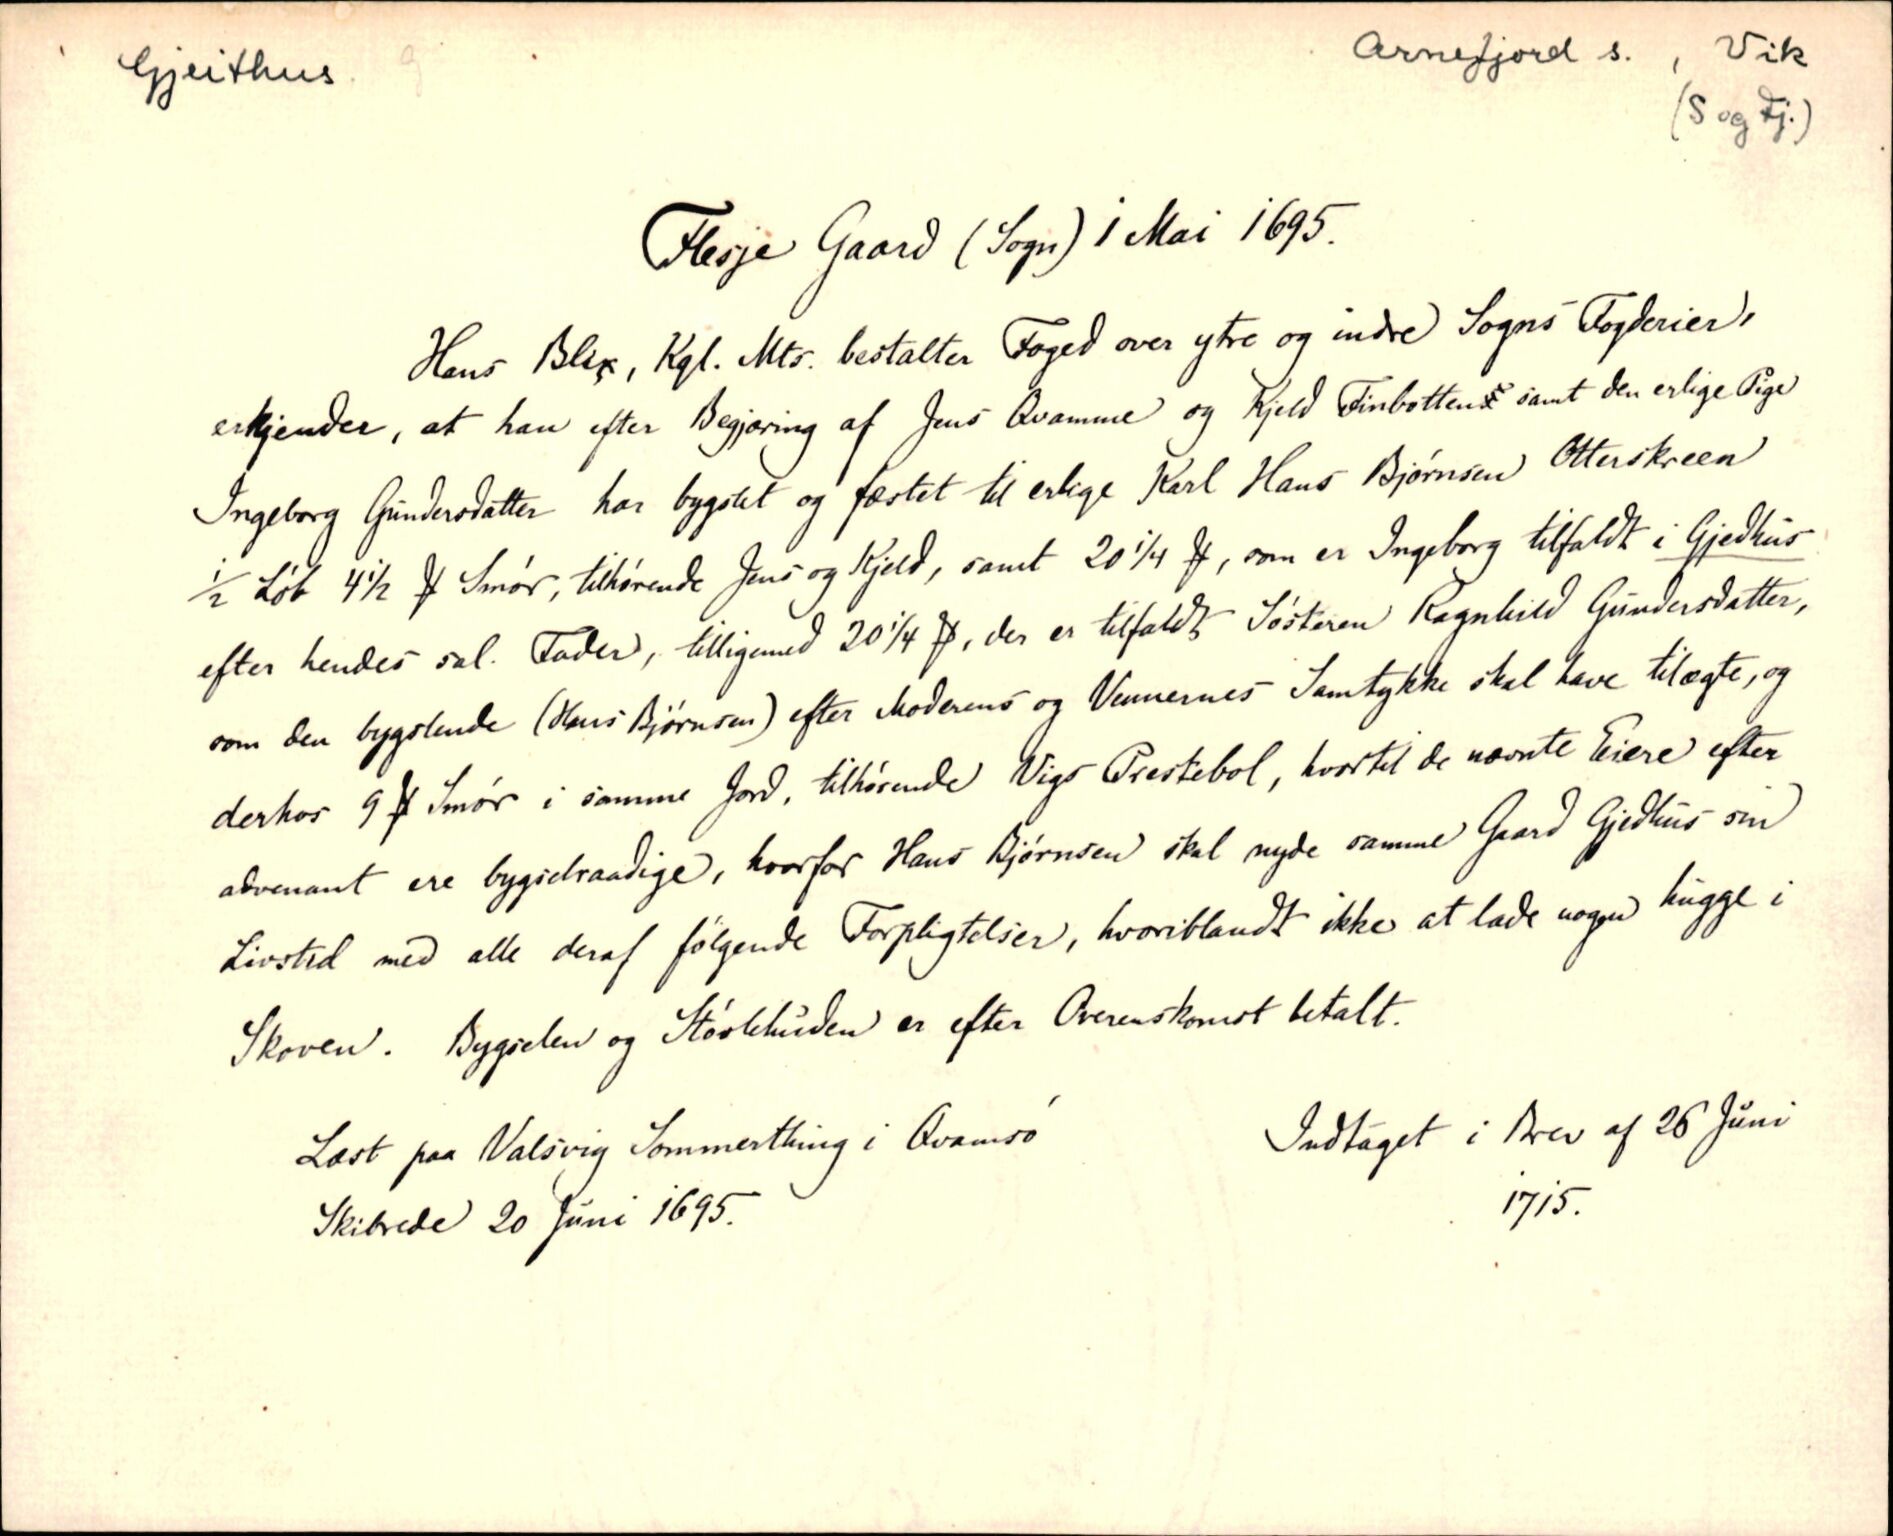 Gjeithus
Arnefjord s. , Vik
(S og Fj.)
Flesje Gaard (Sogn) 1 Mai 1695.
Hans Blix, Kgl. Mts. bestalter Foged over ytre og indre Sogns Fogderier,
erkjender, at han efter Begjæring af Jens Qvamme og Kjeld Finbotten samt den erlige Pige
Ingeborg Gundersdatter har bygslet og fæstet til erlige Karl Hans Bjørnsen Otterskreen
1/2 Løb 4 1/2 ℔ Smør, tilhørende Jens og Kjeld, samt 20 1/4 ℔, som er Ingeborg tilfaldt i Gjedhus
efter hendes sal. Fader, tilligemed 20 1/4 ℔, der er tilfaldt Søsteren Ragnhild Gundersdatter,
som den bygslende (Hans Bjørnsen) efter Moderens og Vennernes Samtykke skal have tilægte, og
derhos 9 ℔ Smør i samme Jord, tilhørende Vigs Prestebol, hvortil de nævnte Eiere efter
advenant ere bygselraadige, hvorfor Hans Bjørnsen skal nyde samme Gaard Gjedhus sin
Livstid med alle deraf følgende Forpligtelser, hvoriblandt ikke at lade nogen hugge i
Skoven. Bygselen og Støvlehuden er efter Overenskomst betalt.
Læst paa Valsvig Sommerthing i Qvamsø
Skibrede 20 Juni 1695.
Indtaget i Brev af 26 Juni
1715.